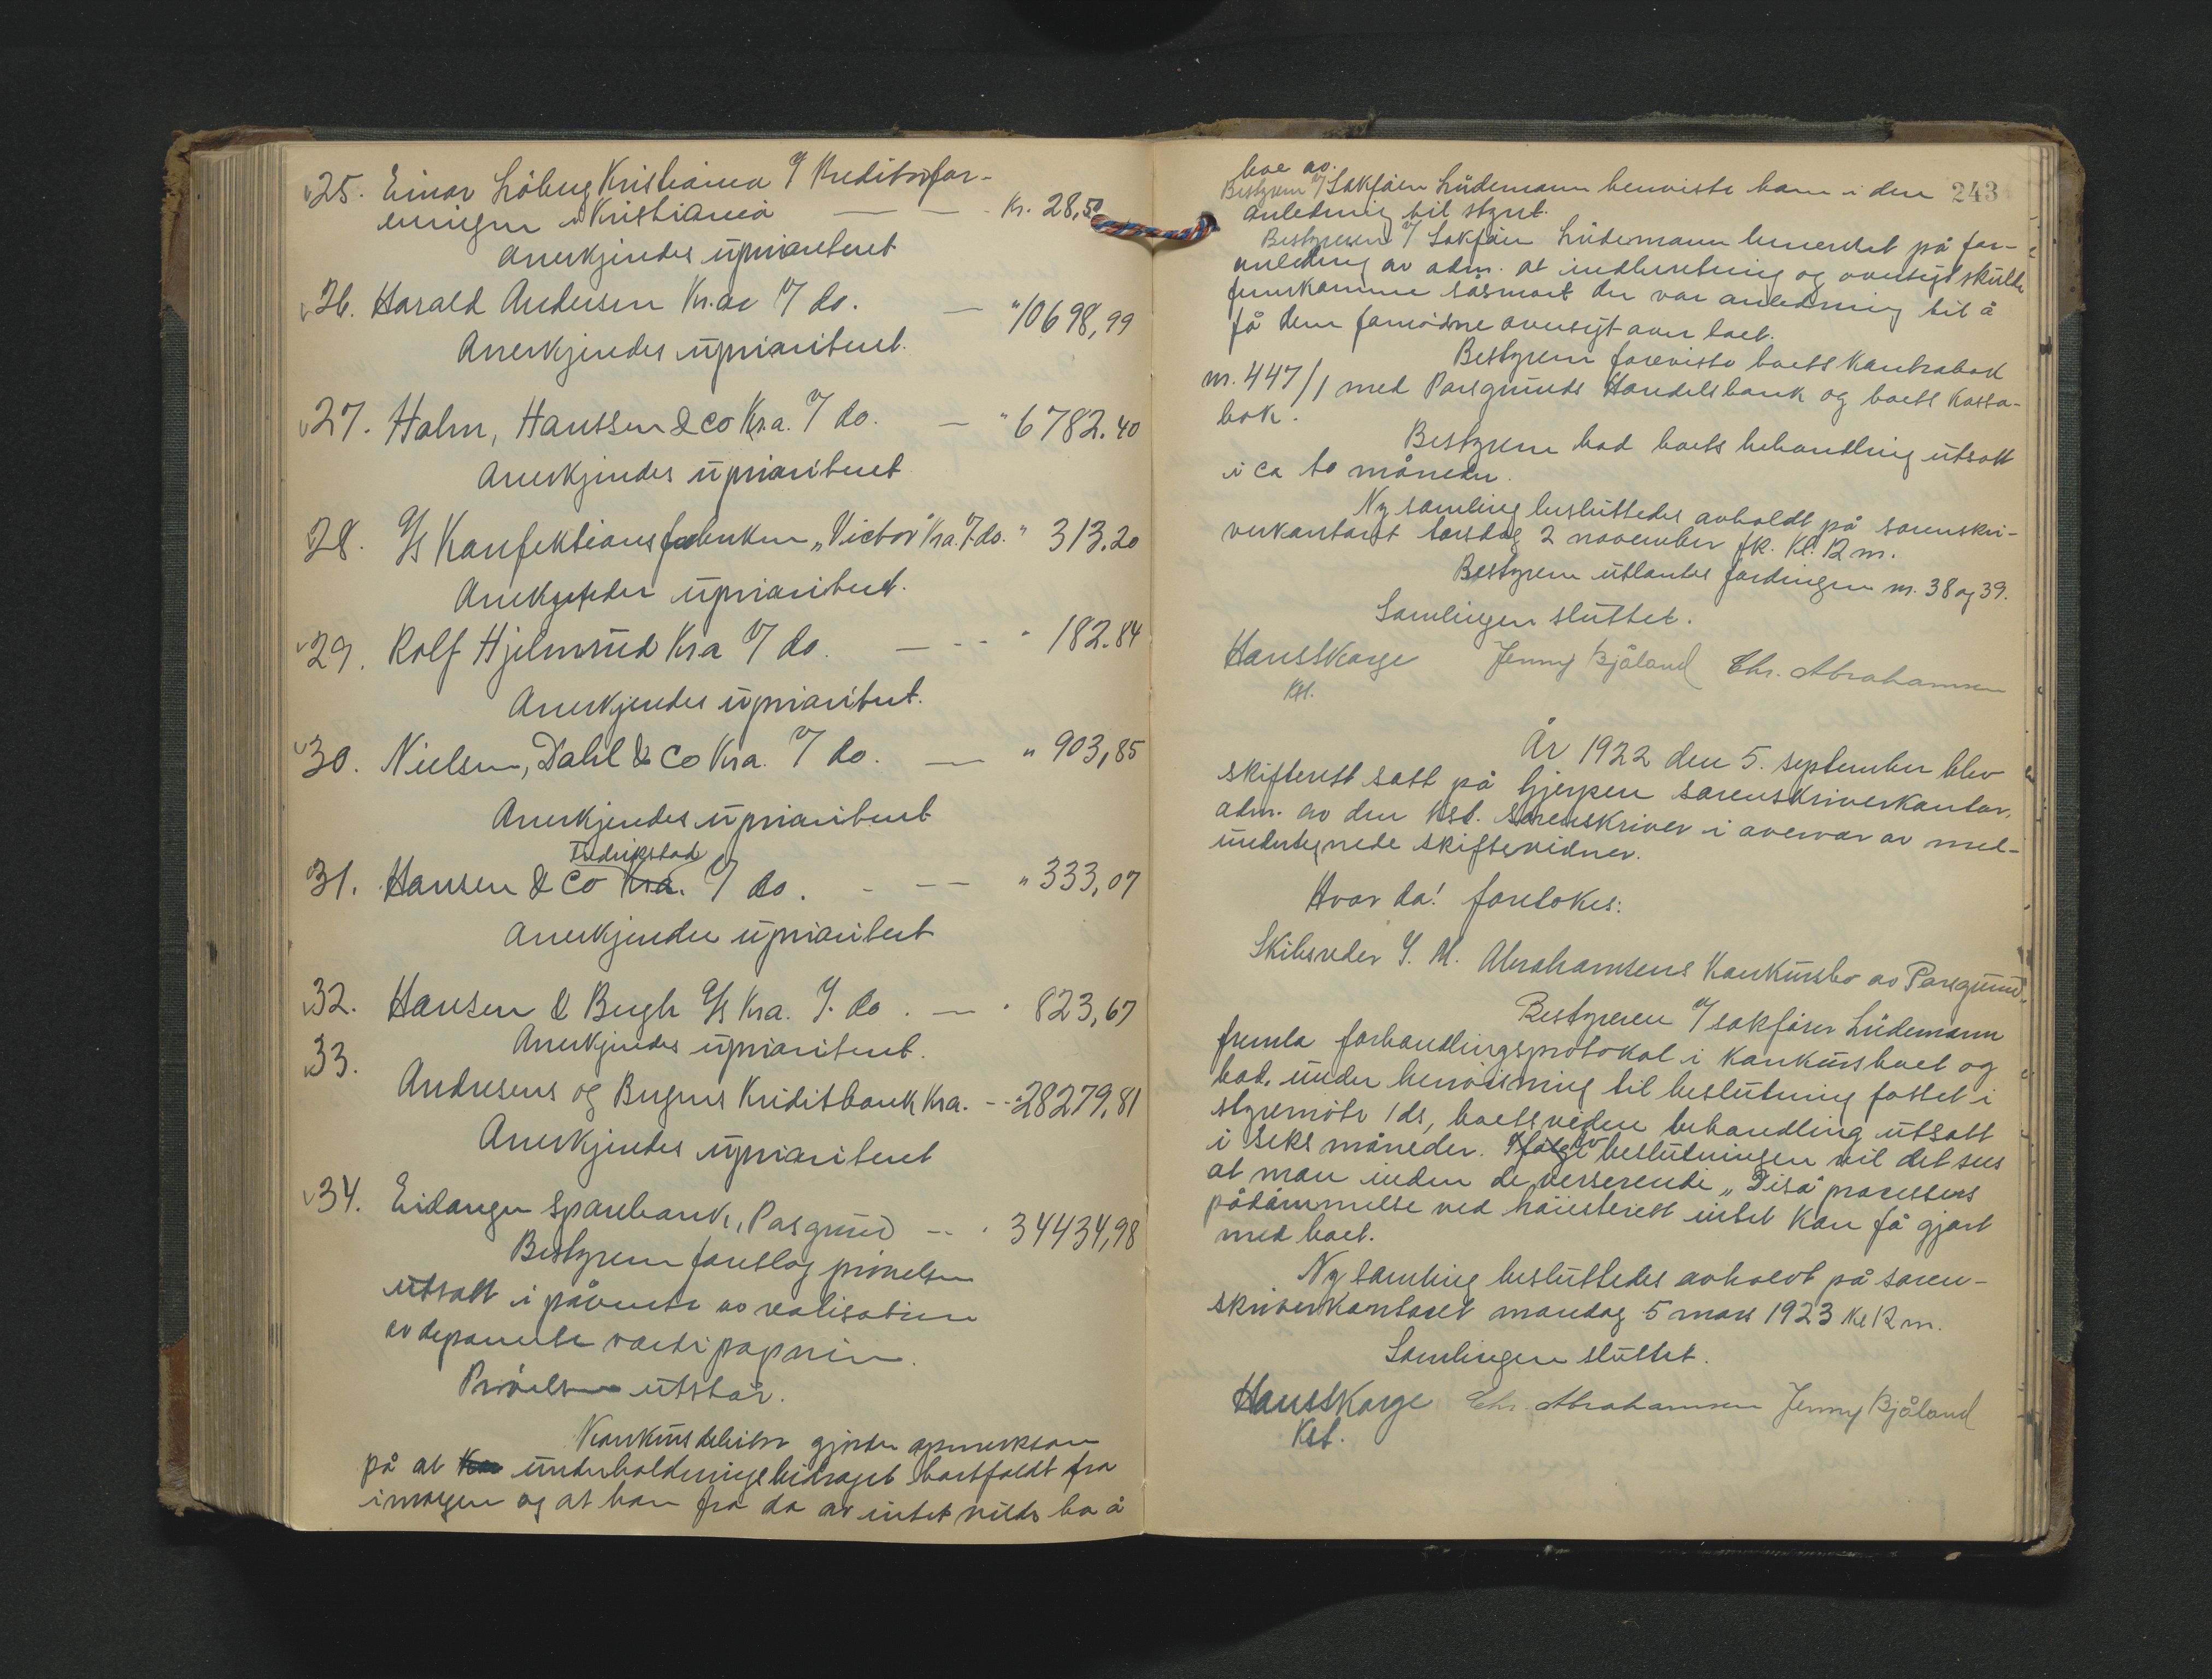 25. Einar Løberg Kristiania v/ Kreditorfor-
eningen i Kristiania — — kr. 28,50
Anerkjendes uprioritert
26. Harald Andersen Kr.a v/ do. — " 10698,99
Anerkjendes uprioritert.
27. Holm, Hanssen & co Kra. v/ do. — " 6782.40
Anerkjendes uprioritert
28. A/s Konfektionsfabriken „Victor" Kra. v/ do. " 313.20
Anerkjendes uprioritert.
29. Rolf Hjelmrud Kra v/ do. — - - " 182.84
Anerkjendes uprioritert.
30. Nielsen, Dahl & Co Kra. v/ do. — " 903,85
Anerkjendes uprioritert
Fredrikstad
31. Hansen & Co Kra. v/ do. - — " 333,07
Anerkjendes uprioritert
32. Hansen & Bugh A/s Kra. v. do. — " 823,67
Anerkjendes uprioritert.
33.
Andresens og Bergens Kreditbank Kra. - - " 28279,81
Anerkjendes uprioritert
34. Eidanger Sparebank, Porsgrund - - " 34434,98
Bestyreren foreslog prøvelsen
utsatt i påvente av realisation
av deponerte værdipapirer.
Prøvelsen utstår.
Konkursdebitor gjorde opmerksom
på at underholdningsbidraget bortfaldt fra
imorgen og at han fra da av intet vilde ha å
243
leve av.
Bestyreren v/ Sakfører Lüdemann henviste ham i den
anledning til styret.
Bestyreren v/ Sakfører Lüdemann bemerket på for-
anledning av adm. at indberetning og oversigt skulde
fremkomme såsnart der var anledning til å
få den fornødne oversigt over boet.
Bestyreren foreviste boets kontrabok
nr. 447/1 med Porsgrunds Handelsbank og boets kassa-
bok.
Bestyreren bad boets behandling utsatt
i ca to måneder.
Ny samling besluttedes avholdt på sorenskri-
verkontoret torsdag 2 november fk. Kl. 12 m.
Bestyreren utlaantes fordringen nr. 38 og 39.
Samlingen sluttet.
Hans Skorge Jenny Bjåland Chr. Abrahamsen
Kst.
År 1922 den 5. september blev
skifterett satt på Gjerpen sorenskriverkontor,
adm. av den kst. sorenskriver i overvær av med-
undertegnede skiftevidner.
Hvor da! foretokes:
Skibsreder J. M. Abrahamsens Konkursbo av Porsgrund.
Bestyreren v/ sakfører Lüdemann
fremla forhandlingsprotokol i konkursboet og
bad, under henvisning til beslutning fattet i
styremøte 1 ds, boets videre behandling utsatt
i seks måneder. Ifølge beslutningen vil det sees
at man inden de verserende „Disa" prosessers
pådømmelse ved høiesterett intet kan få gjort
med boet.
Ny samling besluttedes avholdt på soren-
skriverkontoret mandag 5 mars 1923 Kl 12 m.
Samlingen sluttet.
Hans Skorge Chr. Abrahamsen Jenny Bjåland
Kst.